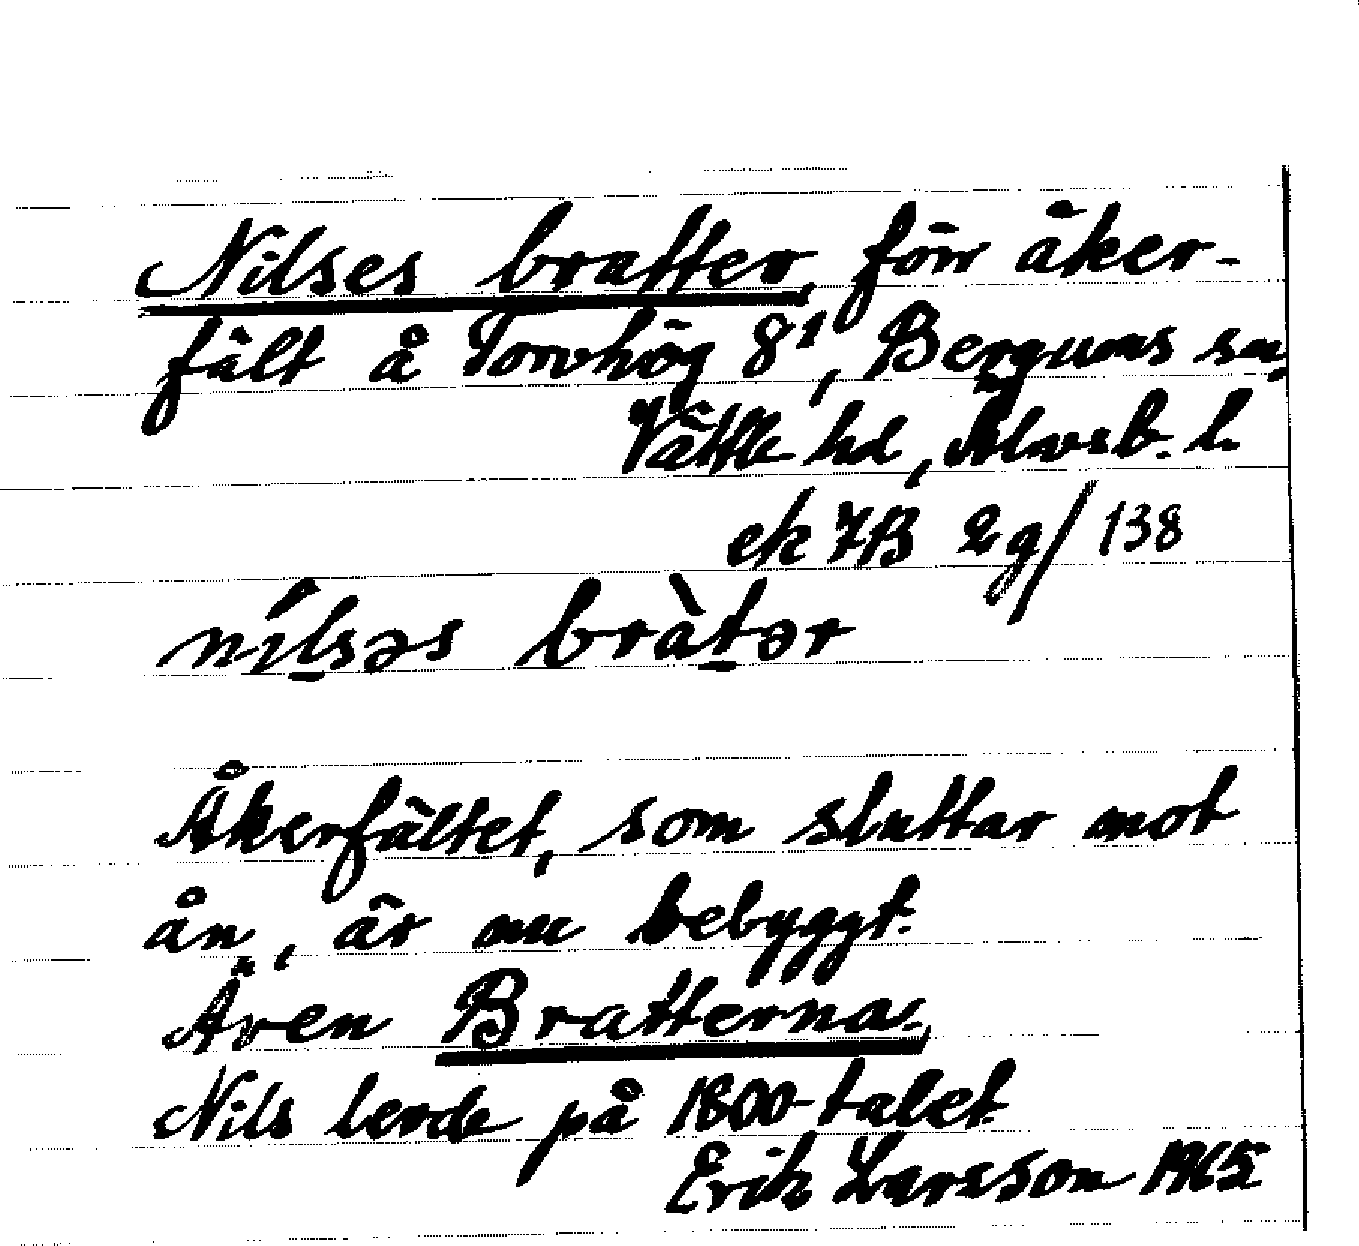 Nilses bratter, förr åker-
fält å Torvhög 8¹, Bergums sn,
Vättle hd, Älvsb. l.
ek 7B 2g/138
nílsəs bràtər
Åkerfältet, som sluttar mot
ån, är nu bebyggt.
Även Bratterna.
Nils levde på 1800-talet.
Erik Larsson 1965